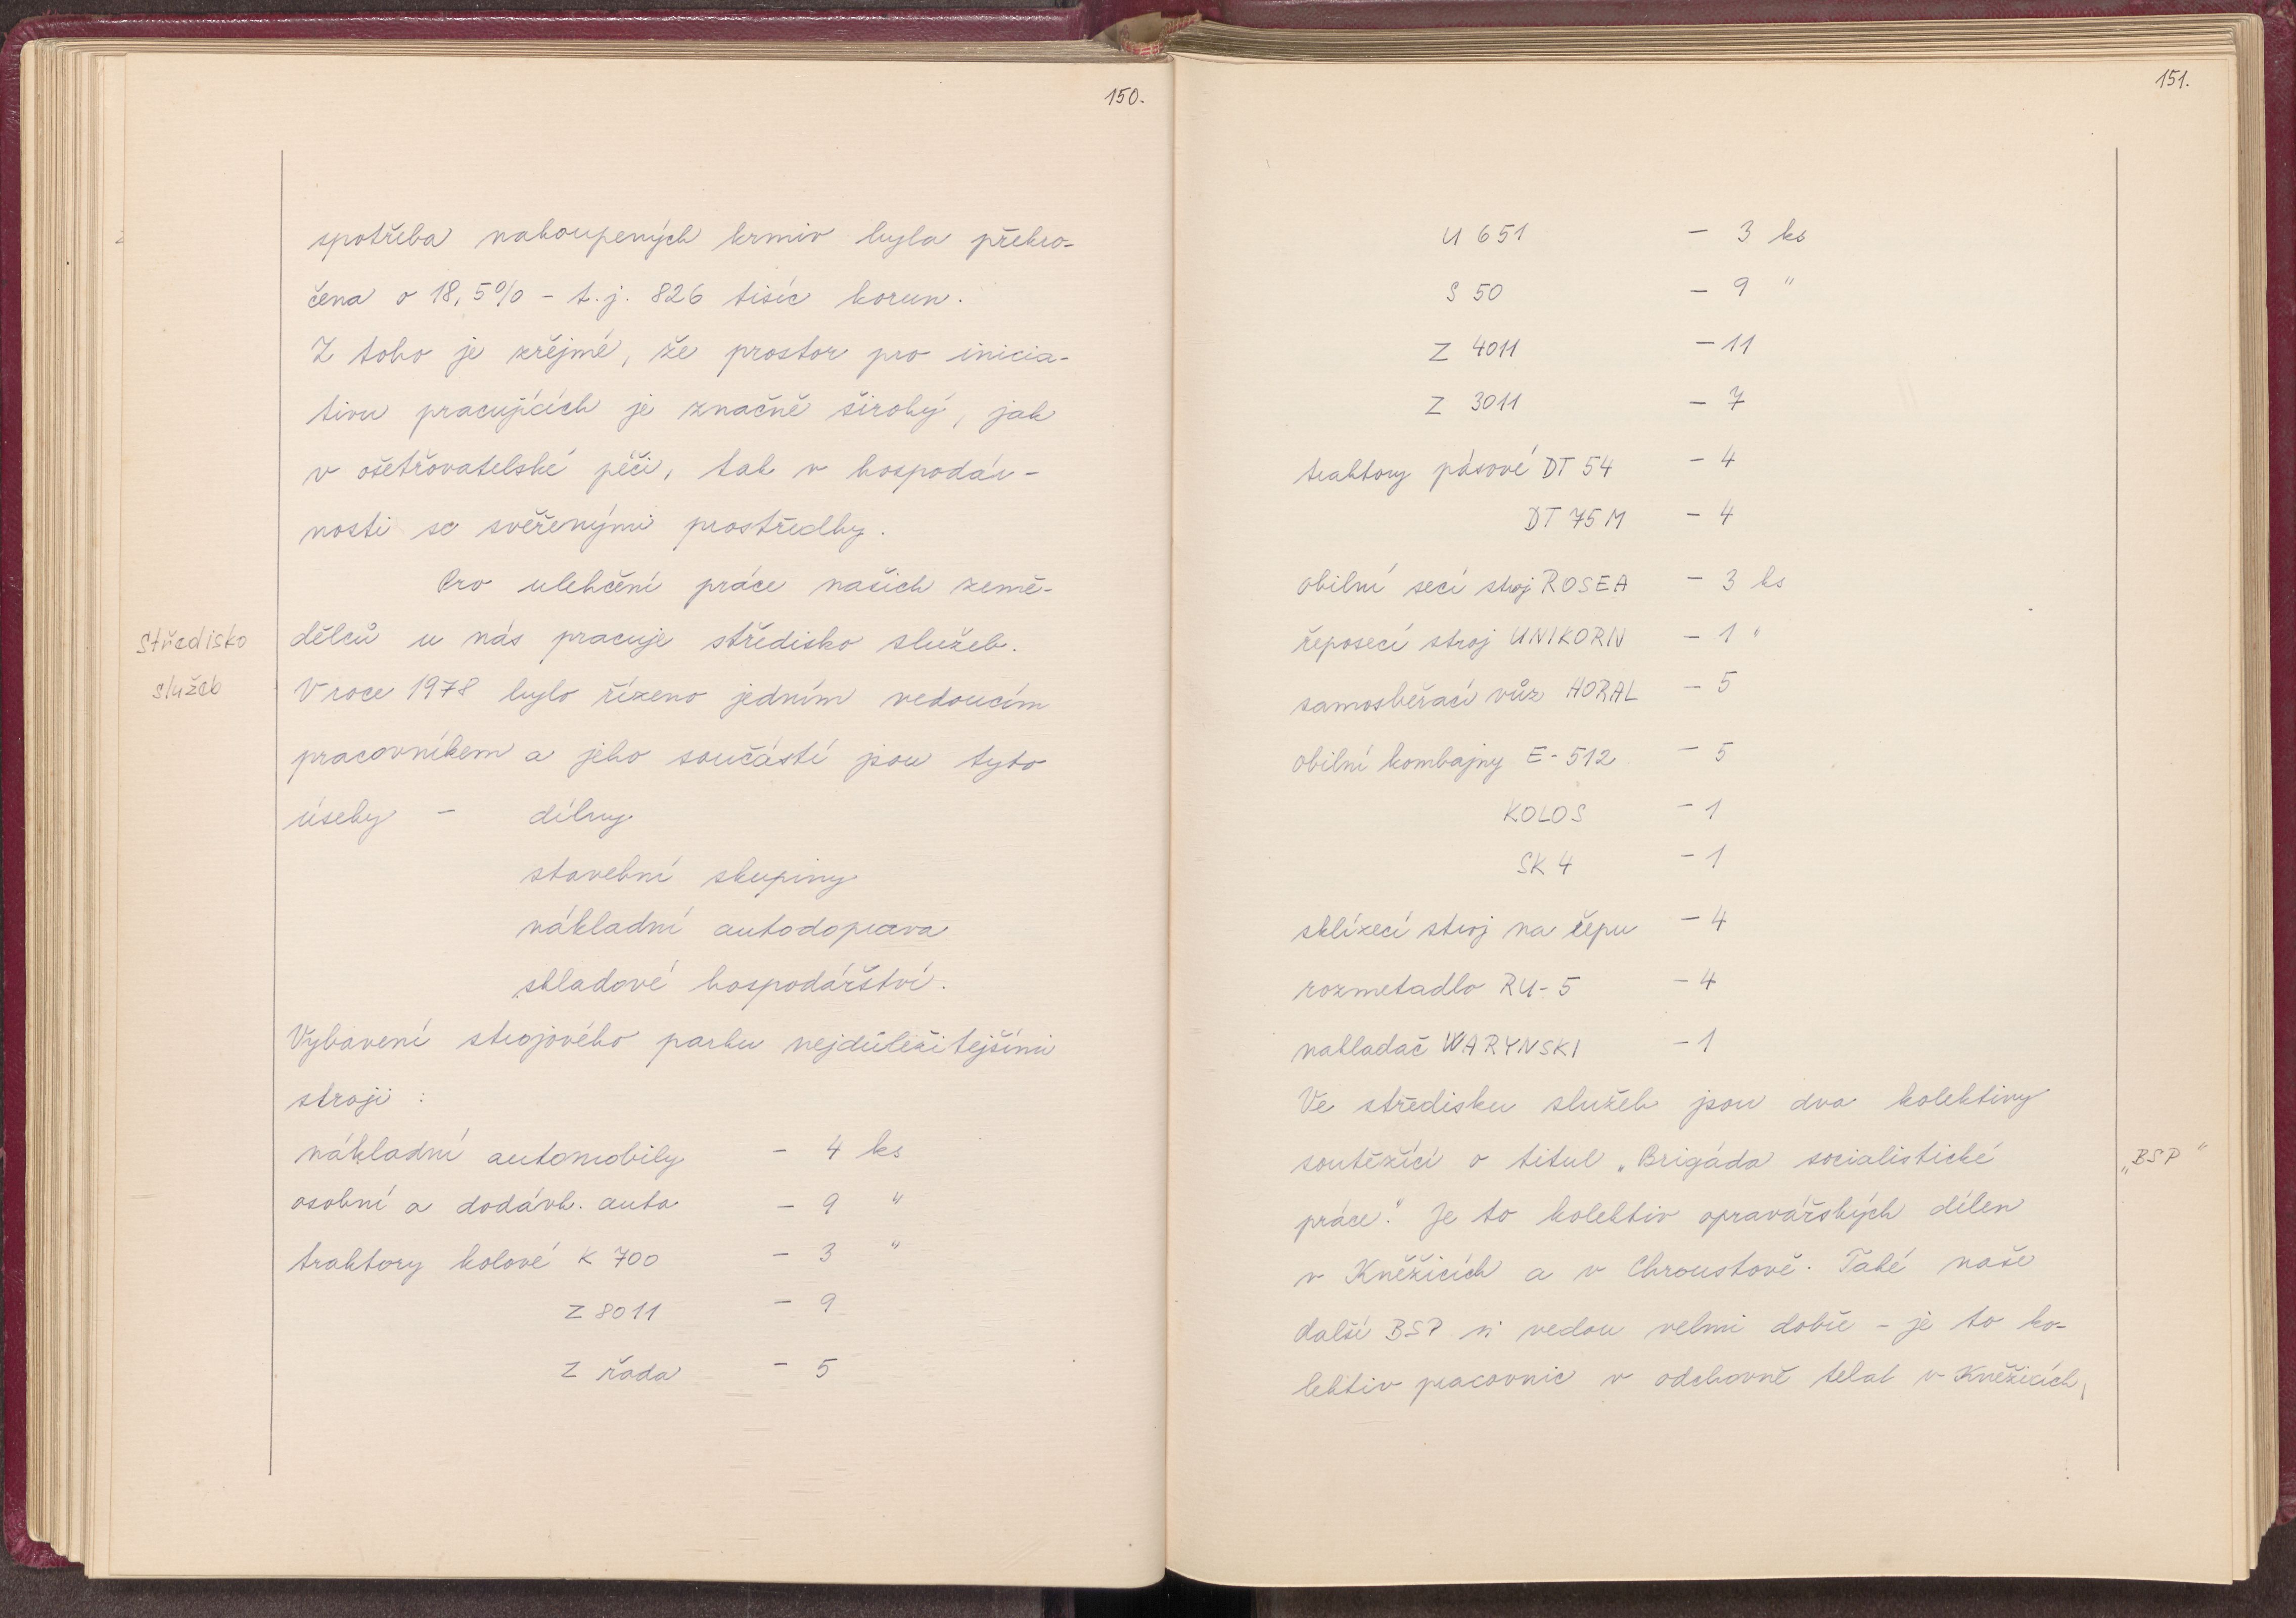 150.
spotřeba nakoupených krmiv byla překro-
čena o 18,5% - t.j. 826 tisíc korun.
Z toho je zřejmé, že prostor pro inicia-
tivu pracujících je značně široký, jak
v ošetřovatelské péči, tak v hospodár-
nosti se svěřenými prostředky.
Pro ulehčení práce našich země-
Středisko
služeb
dělců u nás pracuje středisko služeb.
V roce 1978 bylo řízeno jedním vedoucím
pracovníkem a jeho součástí jsou tyto
úseky - dílny
stavební skupiny
nákladní autodoprava
skladové hospodářství.
Vybavení strojového parku nejdůležitějšími
stroji :
nákladní automobily - 4 ks
osobní a dodávk. auta - 9 "
traktory kolové K 700 - 3 "
Z 8011 - 9
Z řada - 5
151.
U 651 - 3 ks
S 50 - 9 "
Z 4011 - 11
Z 3011 - 7
traktory pásové DT 54 - 4
DT 75 M - 4
obilní secí stroj ROSEA - 3 ks
řeposecí stroj UNIKORN - 1 "
samosběrací vůz HORAL - 5
obilní kombajny E-512 - 5
KOLOS - 1
SK 4 - 1
sklízecí stroj na řepu - 4
rozmetadlo RU-5 - 4
nakladač WARYNSKI - 1
Ve středisku služeb jsou dva kolektivy
soutěžící o titul „Brigáda socialistické
„BSP“
práce." Je to kolektiv opravářských dílen
v Kněžicích a v Chroustově. Také naše
další BSP si vedou velmi dobře - je to ko-
lektiv pracovnic v odchovně telat v Kněžicích,